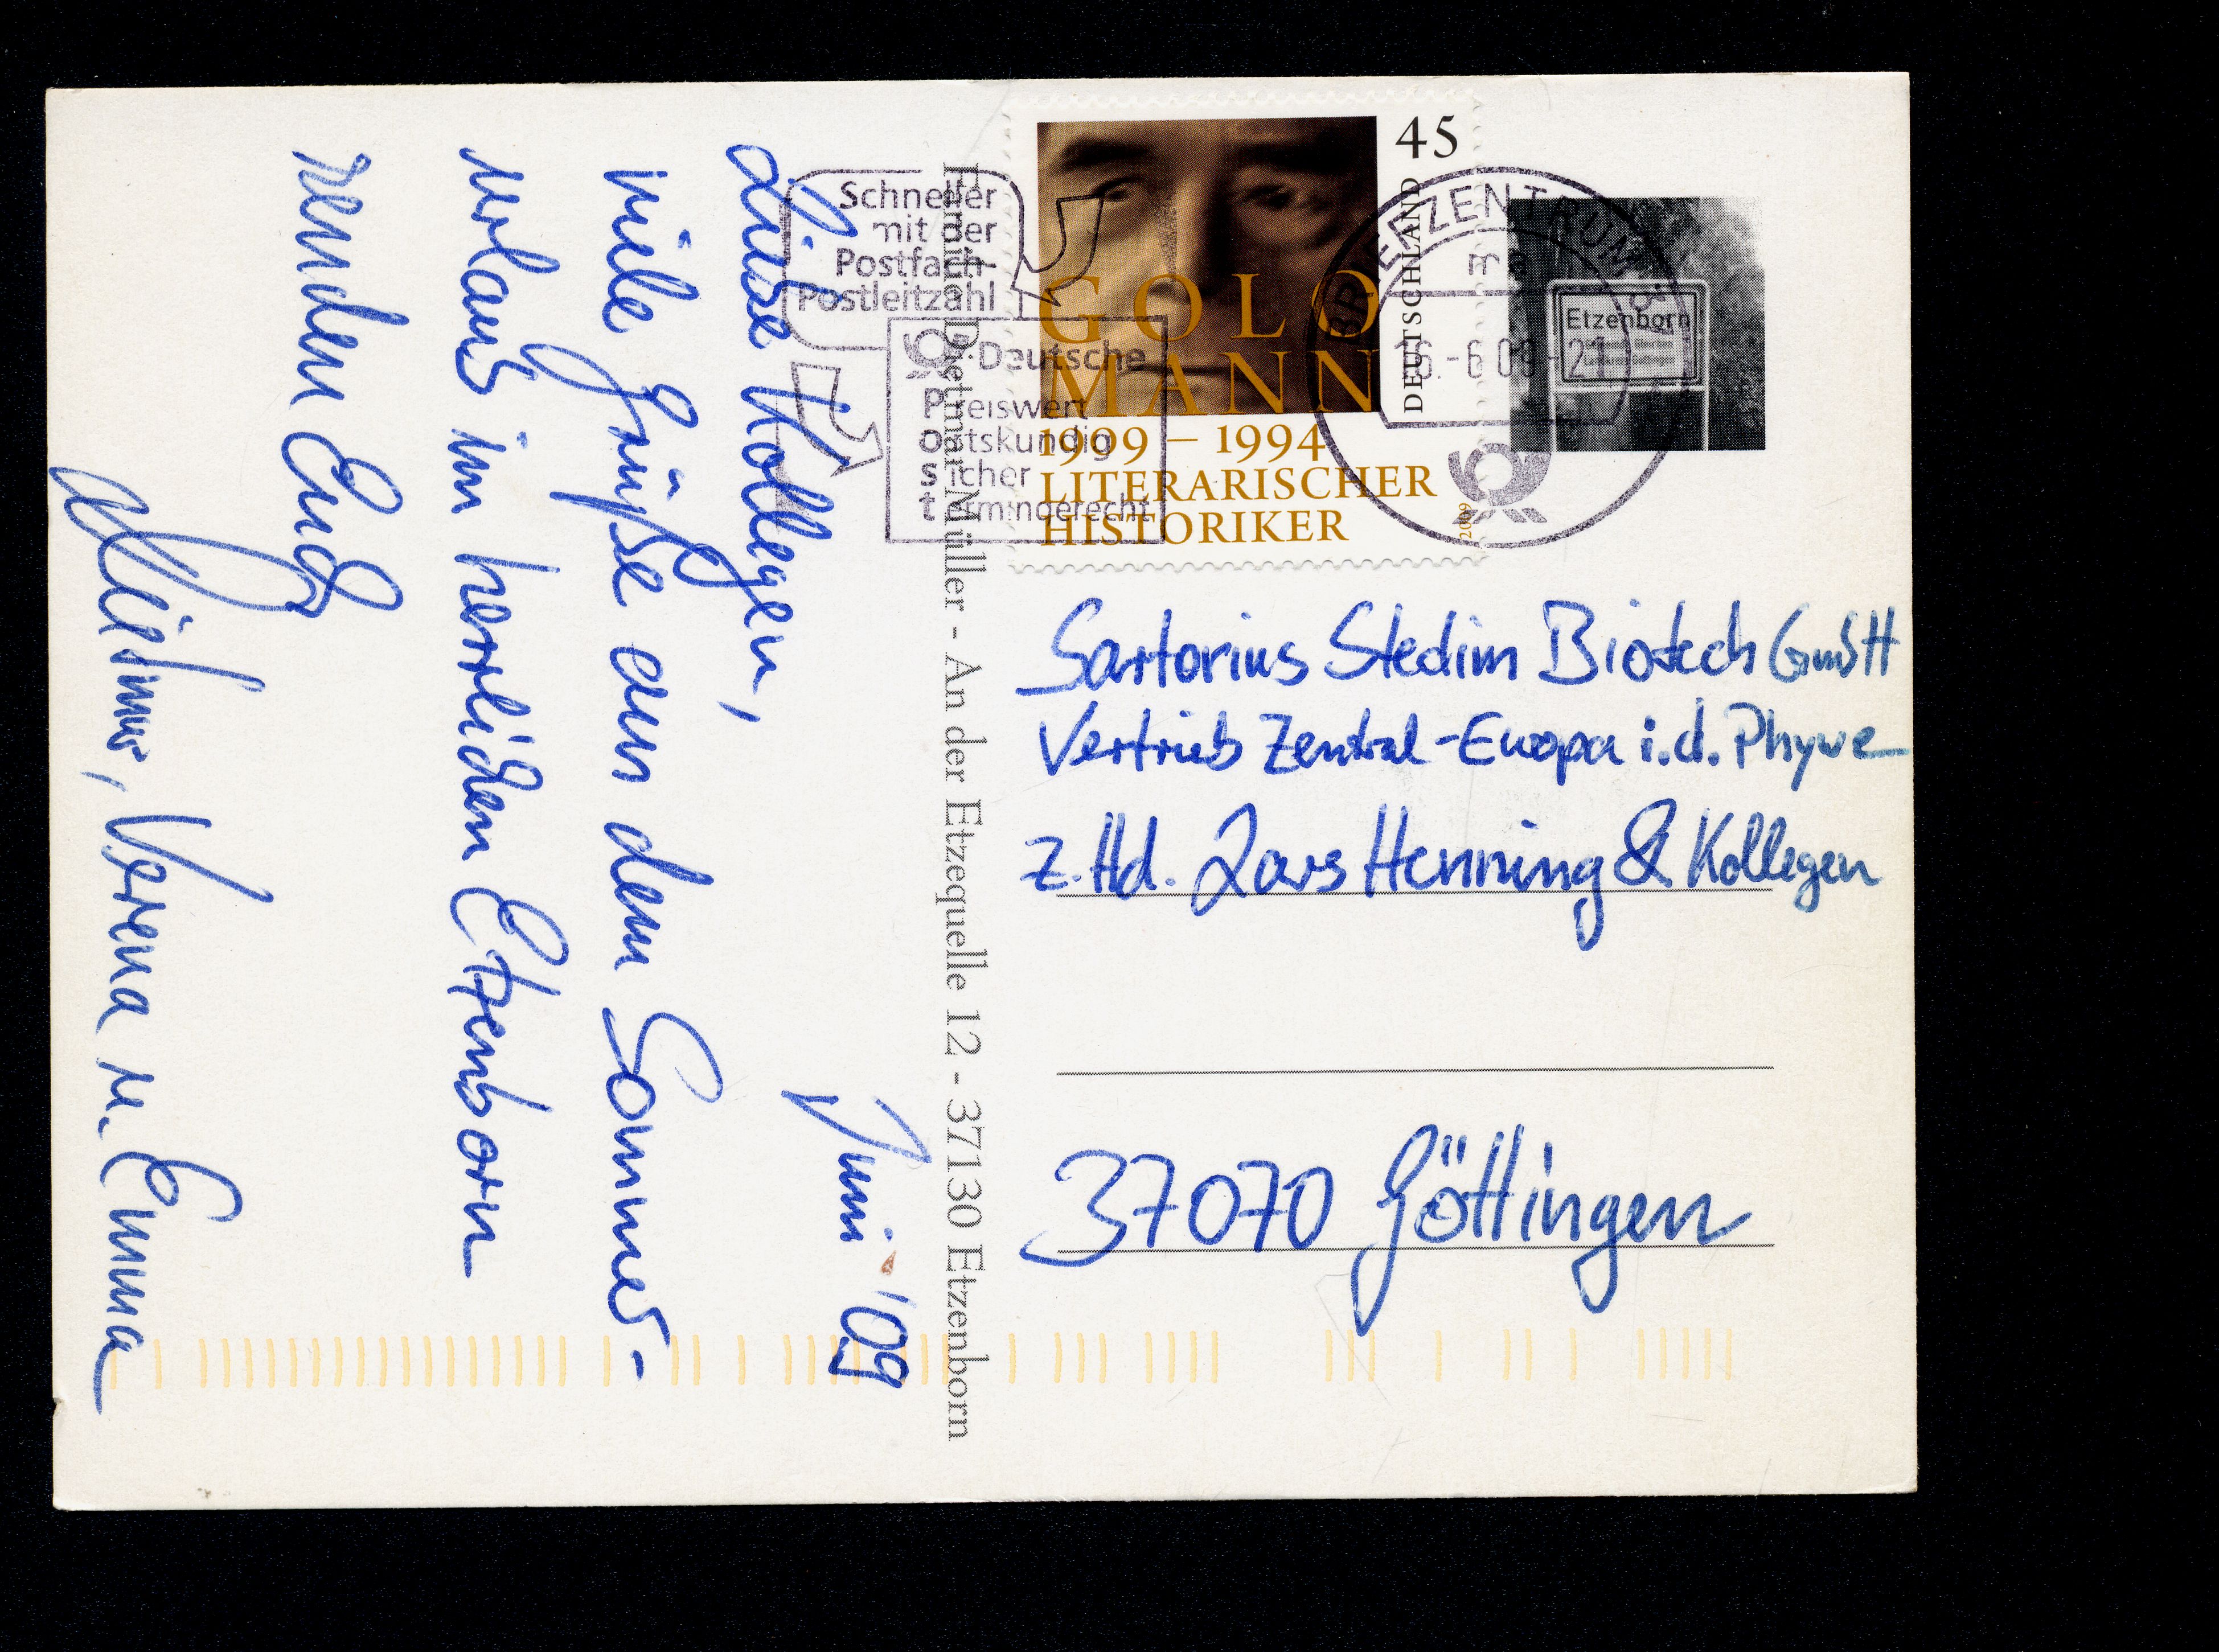 Juni '09
Liebe Kollegen,
viele Grüße aus dem Sommer-
urlaub im herrlichen Etzenborn
senden Euch
Dietmar, Verena u. Emma
Familie Dietmar Müller - An der Etzequelle 12 - 37130 Etzenborn
Schneller
mit der
Postfach-
Postleitzahl
Deutsche
Preiswert
ortskundig
sicher
termingerecht
45
DEUTSCHLAND
GOLO
MANN
1909 – 1994
LITERARISCHER
HISTORIKER
2009
BRIEFZENTRUM 3
ma
-6.09-21
Etzenborn
Sartorius Stedim Biotech GmbH
Vertrieb Zentral-Europa i.d. Phywe
z.Hd. Lars Henning & Kollegen
37070 Göttingen